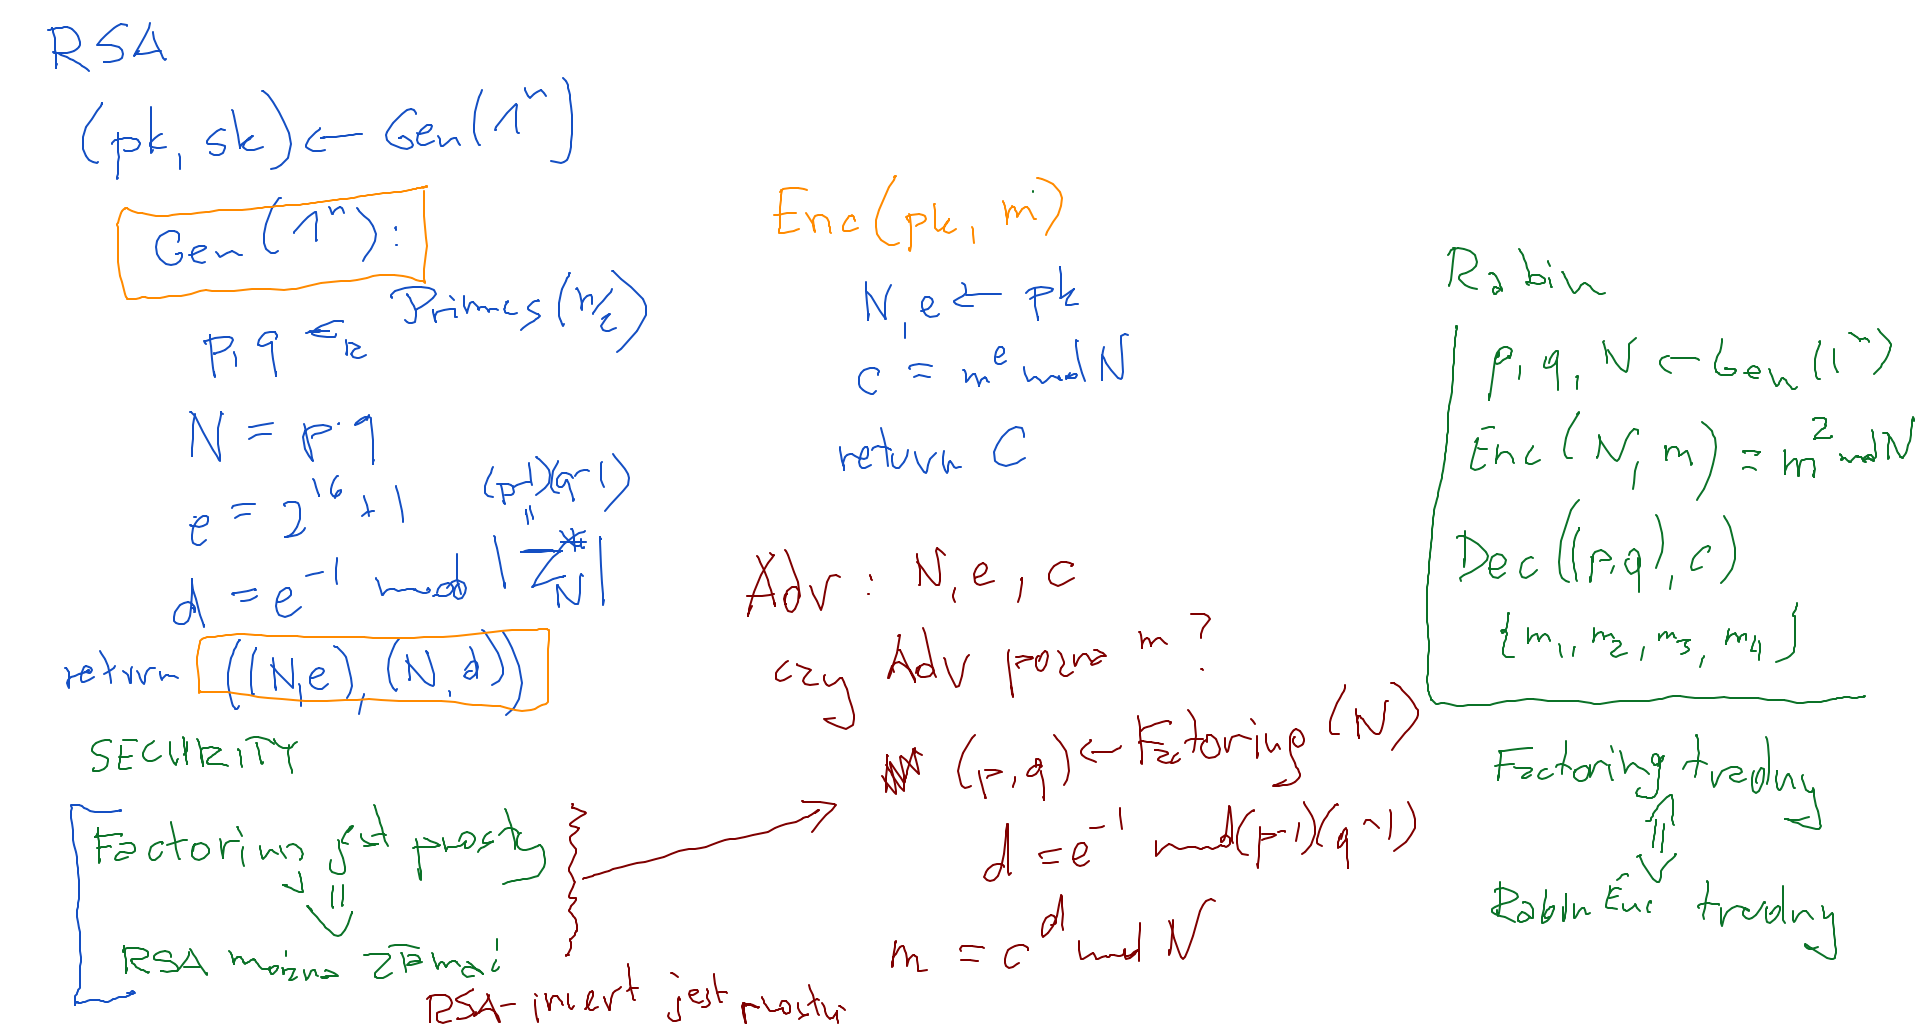 RSA
(pk, sk) ← Gen(1^n)
Gen(1^n):
p, q ←_R Primes(n/2)
N = p·q
e = 2^16 + 1
(p-1)(q-1)
=
d = e^-1 mod |Z_N^*|
return ((N,e), (N,d))
SECURITY
Factoring jest prosty
⇓
RSA można złamać
RSA-invert jest prosty
Enc(pk, m)
N, e ← pk
c = m^e mod N
return C
Adv: N, e, c
czy Adv pozna m?
(p,q) ← Factoring(N)
d = e^-1 mod (p-1)(q-1)
m = c^d mod N
Rabin
p, q, N ← Gen(1^n)
Enc(N, m) = m^2 mod N
Dec((p,q), c)
{m1, m2, m3, m4}
Factoring trudny
⇕
Rabin Enc trudny